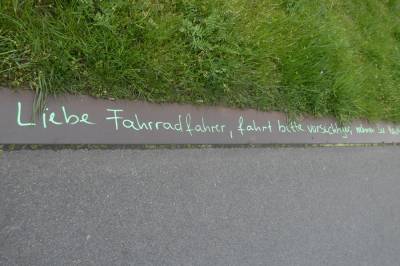 Liebe Fahrradfahrer, fahrt bitte vorsichtig, nehmen Sie